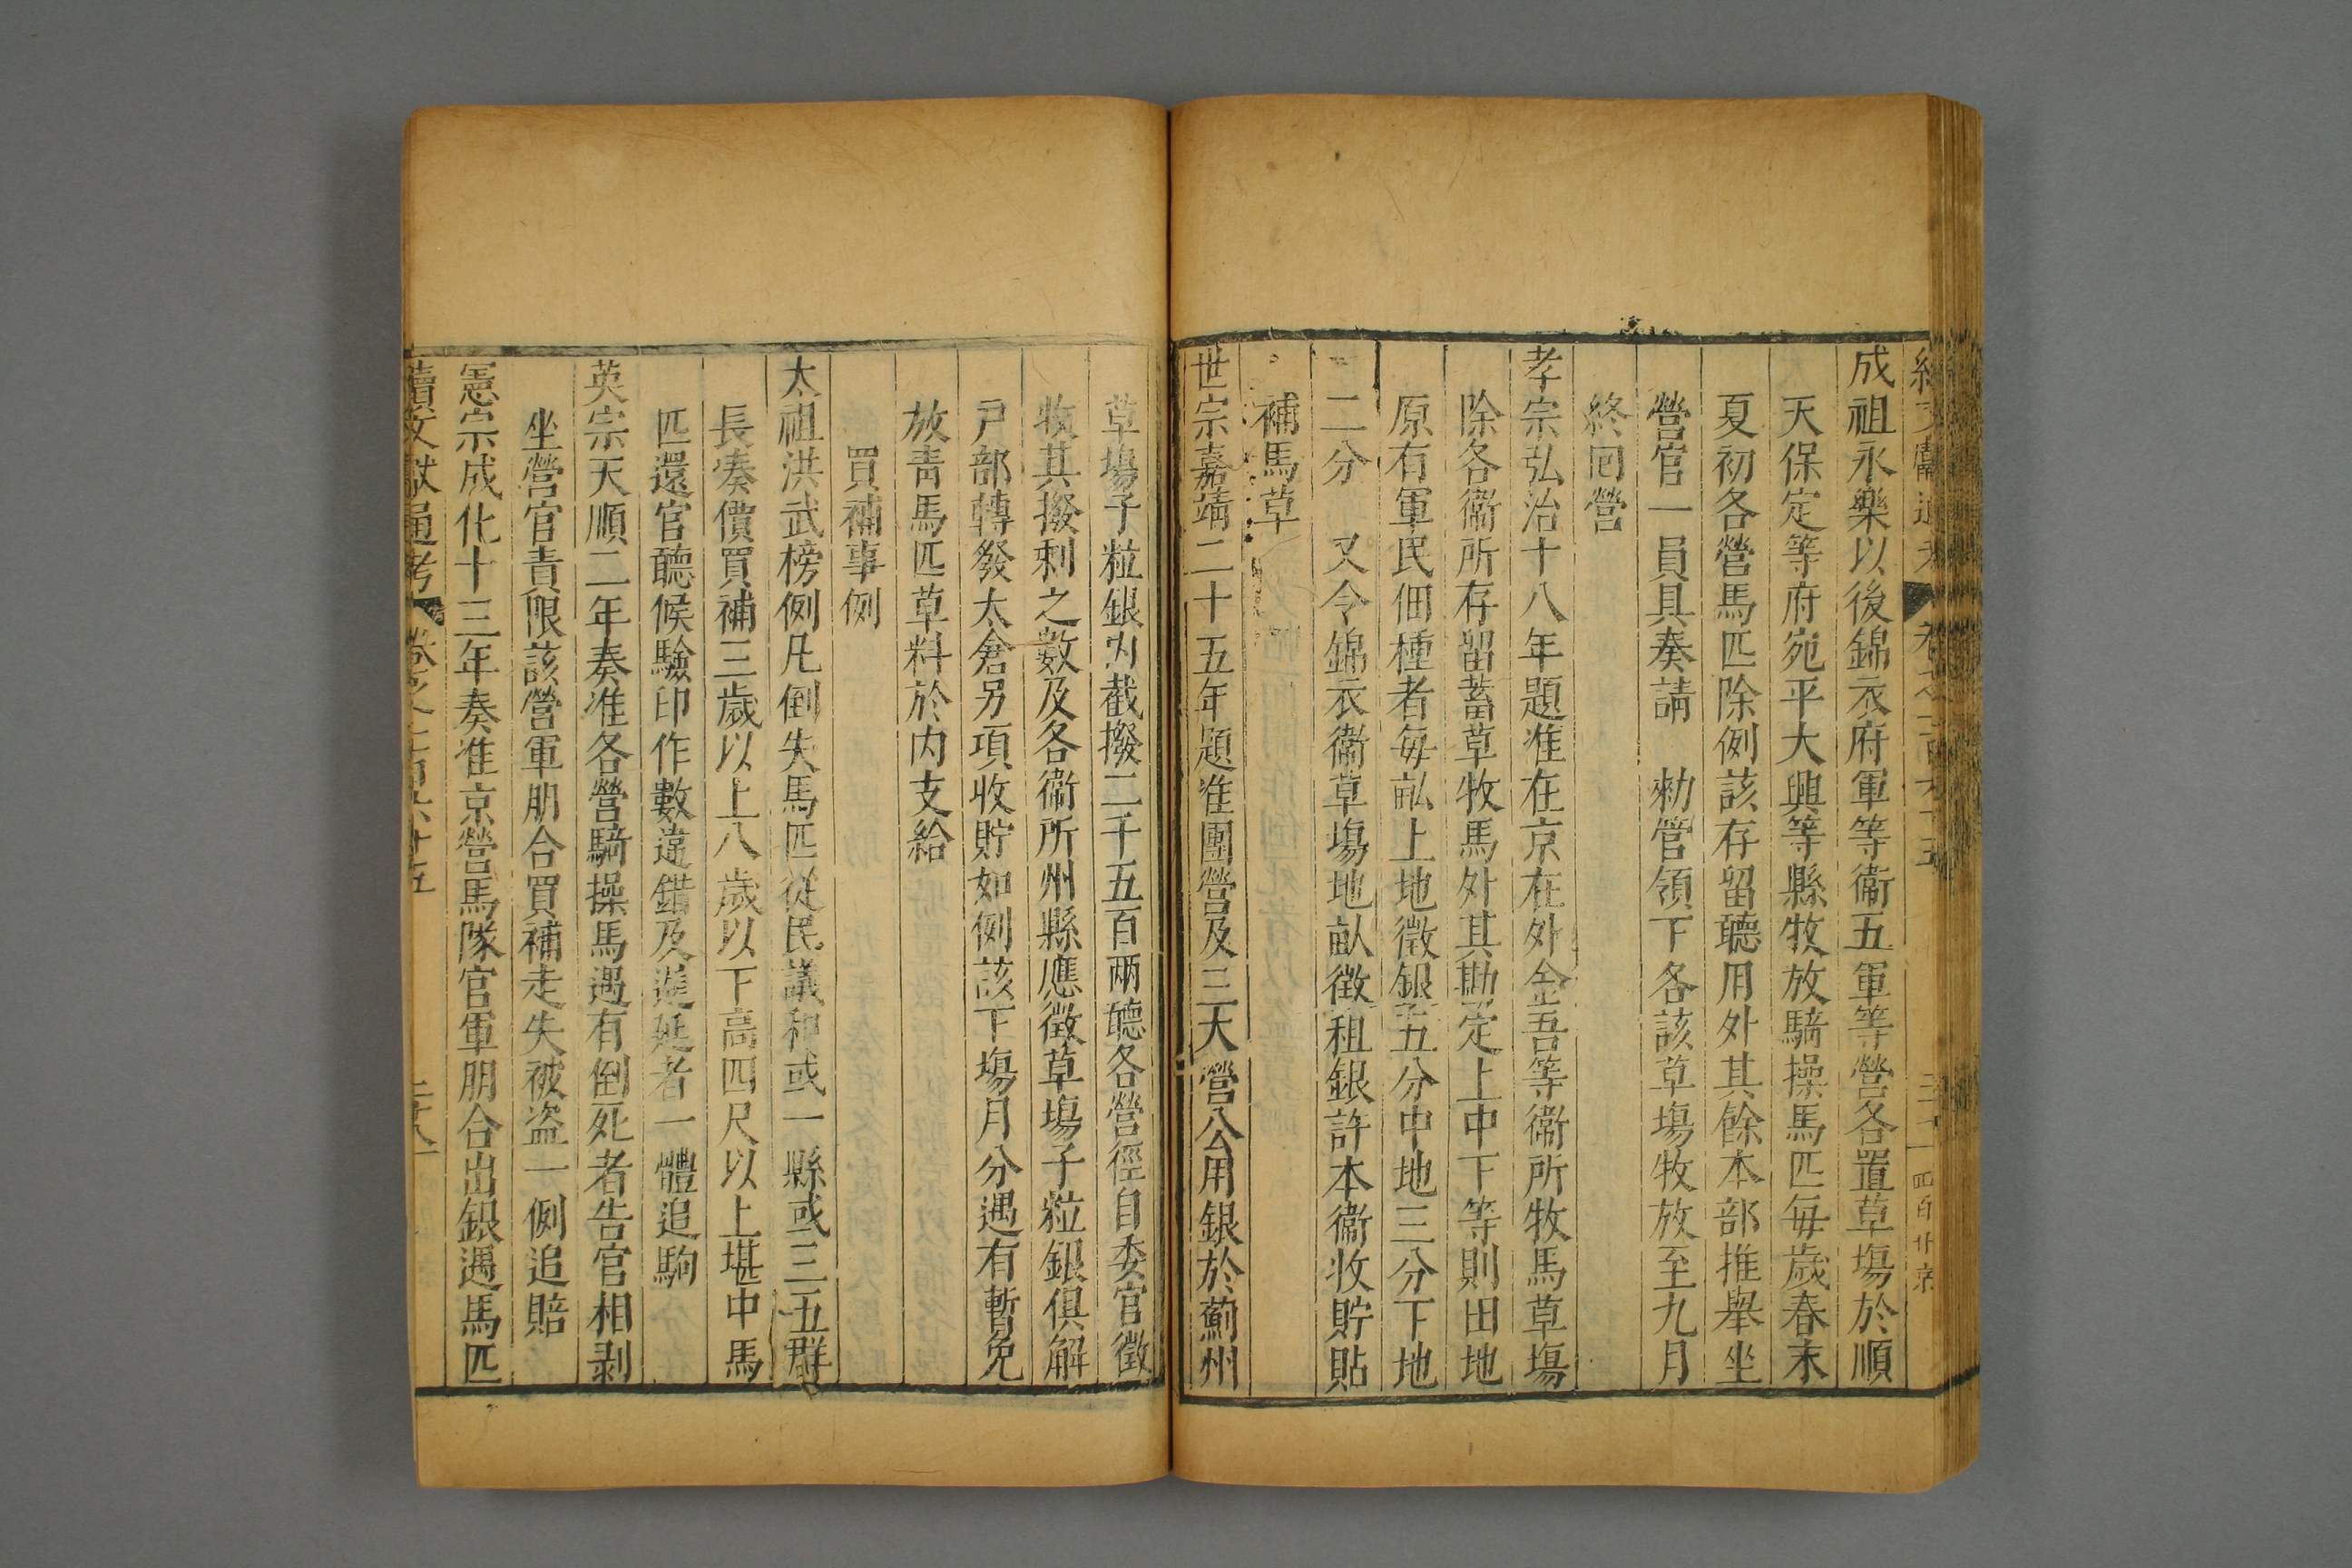 成祖永樂以後錦衣府軍等衞五軍等營各置草場於順
天保定等府宛平大興等縣牧放騎操馬匹毎歲春末
夏初各營馬匹除例該存留聽用外其餘本部推舉坐
營官一員具奏請 勑管領下各該草塲牧放至九月
終囘營
孝宗弘治十八年題准在京在外金吾等衞所牧馬草塲
除各衞所存留蓄草牧馬外其勘定上中下等則田地
原有軍民佃種者毎畝上地徵銀五分中地三分下地
二分 又令錦衣衞草塲地畝徵租銀許本衞收貯貼
補馬草
世宗嘉靖二十五年題准團營及三大營公用銀於薊州
草塲子粒銀内截撥二千五百兩聽各營徑自委官徵
收其撥剩之數及各衞所州縣應徵草塲子粒銀俱解
戸部轉發太倉另項收貯如例該下塲月分遇有暫免
放青馬匹草料於内支給
買補事例
太祖洪武榜例凡倒失馬匹從民議和或一縣或三五群
長湊價買補三歲以上八歲以下高四尺以上堪中馬
匹還官聽候驗印作數違錯及遲延者一體追駒
英宗天順二年奏准各營騎操馬遇有倒死者告官相剥
坐營官責限該營軍朋合買補走失被盗一例追賠
憲宗成化十三年奏准京營馬隊官軍朋合出銀遇馬匹
續文獻通考 卷之一百六十五